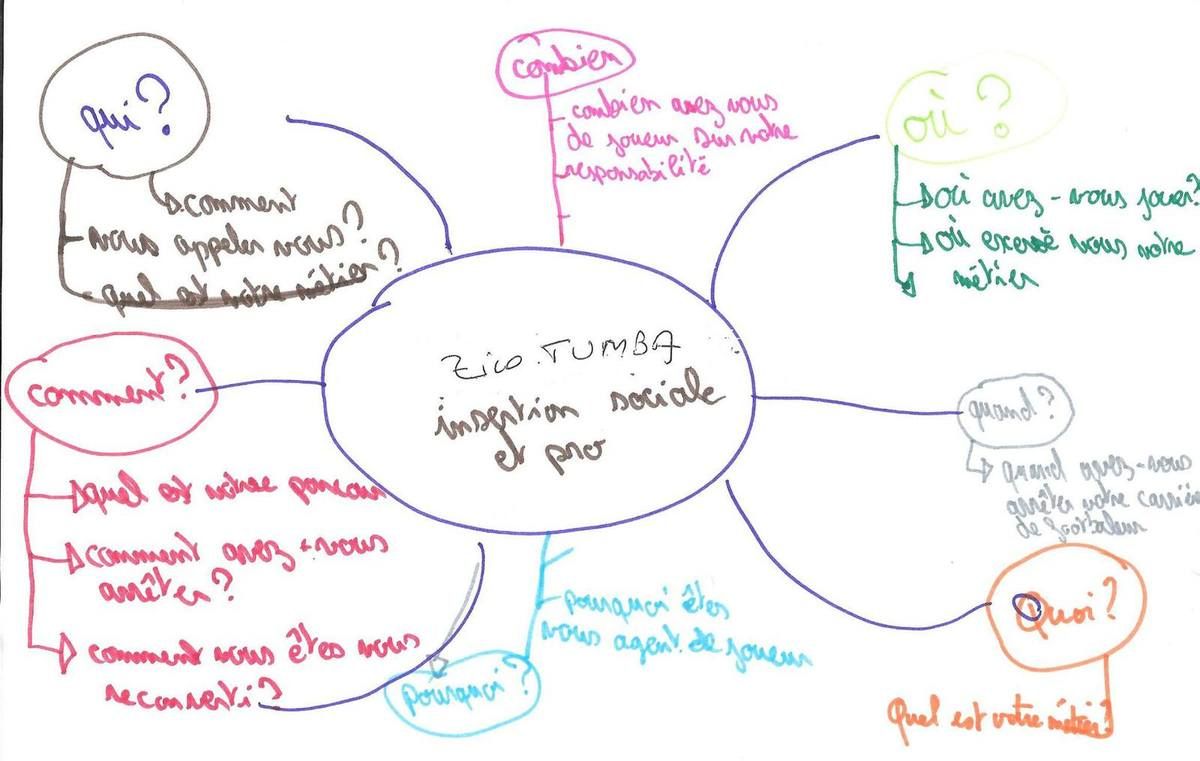 qui ?
comment
vous appeler vous ?
quel est votre métier ?
combien
combien avez vous
de joueur sur votre
responsabilité
où ?
où avez-vous jouer?
où excersé vous votre
métier
Zico.TUMBA
insertion sociale
et pro
comment ?
quel est votre parcour
comment avez-vous
arrêter ?
comment vous êtes vous
reconverti ?
quand ?
quand avez-vous
arrêter votre carrière
de footbaleur
pourquoi êtes
vous agent de joueur
pourquoi ?
Quoi ?
Quel est votre métier?